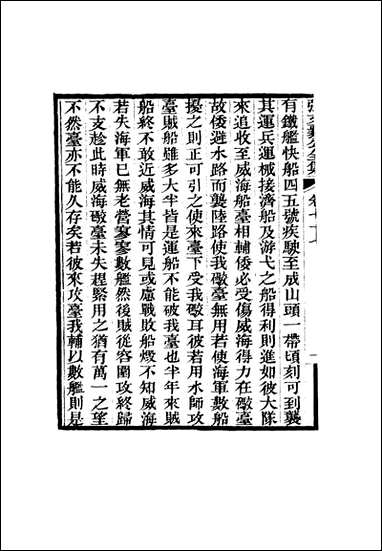 張文襄公全集 卷七十
有鐵艦快船四五號疾駛至威山頭一帶頃刻可到襲
其運兵運械接濟船及游弋之船得利則進如彼大隊
來追收至威海船臺相輔倭必受傷威海得力在礮臺
故倭避水路而襲陸路使我礮臺無用若使海軍數船
擾之則正可引之使來臺下受我礮耳彼若用水師攻
臺賊船雖多大半皆是運船不能破我臺也半年來賊
船終不敢近威海其情可見或慮戰敗船燬不知威海
若失海軍已無老營寥寥數艦然後賊從容圍攻終歸
不支趁此時威海礮臺未失趕緊用之猶有萬一之望
不然臺亦不能久存矣若彼來攻臺我輔以數艦則是